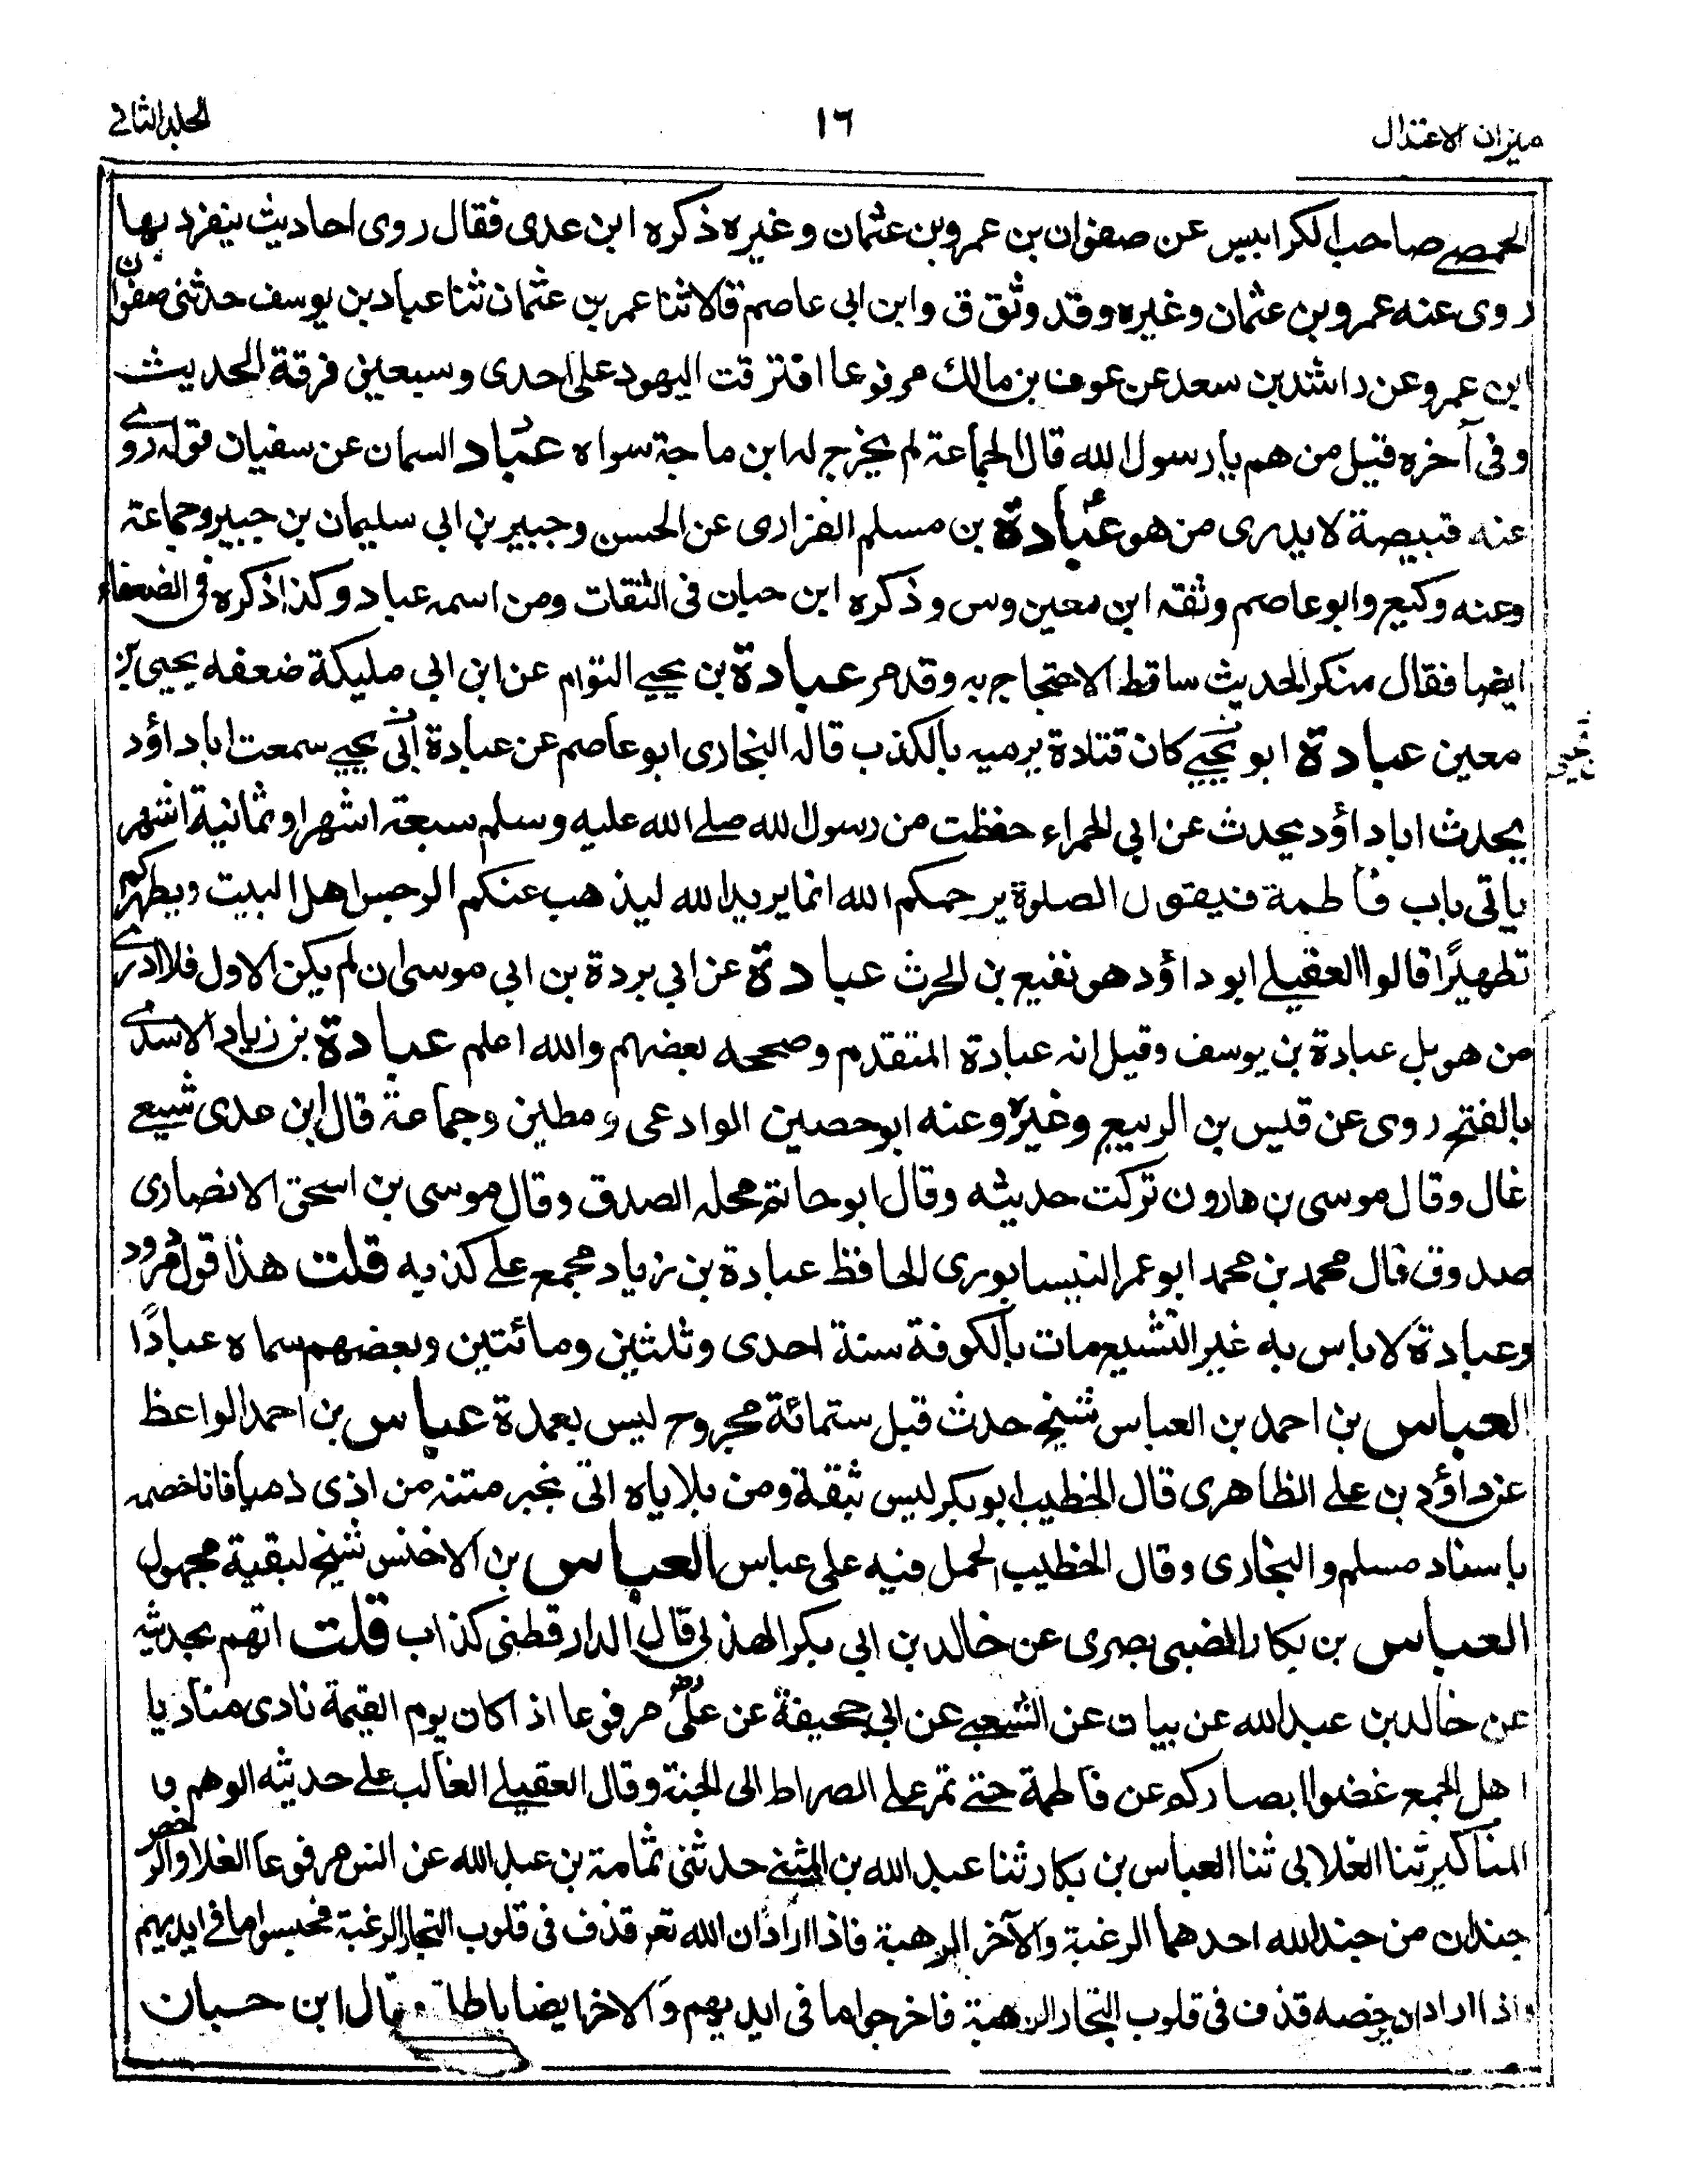 ميزان الاعتدال
١٦
الجلد الثانى
الحمصے صاحب الكرابيس عن صفوان بن عمرو بن عثمان وغيره ذكره ابن عدى فقال روى احاديث ينفرد بها
روى عنه عمرو بن عثمان وغيره وقد وثق ق وابن ابى عاصم قالا ثنا عمر بن عثمان ثنا عباد بن يوسف حدثنى صفوان
ابن عمرو عن راشد بن سعد عن عوف بن مالك مرفوعا افترقت اليهود على احدى وسبعين فرقة الحديث
وفى آخره قيل من هم يا رسول الله قال الجماعة لم يخرج له ابن ماجة سواه عباد السمان عن سفيان قوله روے
عنه قبيصة لا يدرى من هو عبادة بن مسلم الفزارى عن الحسن وجبير بن ابى سليمان بن جبير وجماعة
وعنه وكيع وابو عاصم وثقه ابن معين وس وذكره ابن حبان فى الثقات ومن اسمه عباد وكذا ذكره فى الضعفاء
ايضا فقال منكر الحديث ساقط الاحتجاج به وقد مر عبادة بن يحيے التوام عن ابن ابى مليكة ضعفه يحيى بن
معين عبادة ابو يحيے كان قتادة يرميه بالكذب قاله البخارى ابو عاصم عن عبادة ابى يحيے سمعت ابا داؤد
يحدث ابا داؤد يحدث عن ابى الحمراء حفظت من رسول الله صلے الله عليه وسلم سبعة اشهر او ثمانية اشهر
ياتى باب فاطمة فيقول الصلوة يرحمكم الله انما يريد الله ليذهب عنكم الرجس اهل البيت ويطهركم
تطهيرًا قالوا العقيلے ابو داؤد هو نفيع بن الحرث عبادة عن ابى بردة بن ابى موسى ان لم يكن الاول فلا ادرے
من هو بل عبادة بن يوسف وقيل انه عبادة المتقدم وصححه بعضهم والله اعلم عبادة بن زياد الاسدے
بالفتح روى عن قيس بن الربيع وغيره وعنه ابو حصين الوادعى ومطين وجماعة قال ابن عدى شيعے
غال وقال موسى بن هارون تركت حديثه وقال ابو حاتم محله الصدق وقال موسى بن اسحق الانصارى
صدوق قال محمد بن محمد ابو عمر النيسابورى الحافظ عبادة بن زياد مجمع علے كذبه قلت هذا قول مردود
وعبادة لا باس به غير التشيع مات بالكوفة سنة احدى وثلثين ومائتين وبعضهم سماه عبادًا
العباس بن احمد بن العباس شيخ حدث قبل ستمائة مجروح ليس بعمدة عباس بن احمد الواعظ
عن داؤد بن علے الظاهرى قال الخطيب ابو بكر ليس بثقة ومن بلاياه اتى بخبر متنه من اذى ذميا فانا خصمه
باسناد مسلم والبخارى وقال الخطيب الحمل فيه على عباس العباس بن الاخنس شيخ لبقية مجهول
العباس بن بكار الضبى بصرى عن خالد بن ابى بكر الهذلى قال الدارقطنى كذاب قلت اتهم بحديثه
عن خالد بن عبد الله عن بيان عن الشعبے عن ابى جحيفة عن علىؓ مرفوعا اذا كان يوم القيمة نادى مناد يا
اهل الجمع غضوا ابصاركم عن فاطمة حتے تمر علے الصراط الى الجنة وقال العقيلے الغالب علے حديثه الوهم و
المناكير ثنا الغلابى ثنا العباس بن بكار ثنا عبد الله بن المثنے حدثنى ثمامة بن عبد الله عن انس مرفوعا الغلا والرخص
جندان من جند الله احدهما الرغبة والآخر الرهبة فاذا اراد ان الله تعر قذف فى قلوب التجار الرغبة فحبسوا ما فے ايديهم
واذا اراد ان يرخصه قذف فى قلوب التجار الرهبة فاخرجوا ما فى ايديهم والاخر ايضا باطلة وقال ابن حبان